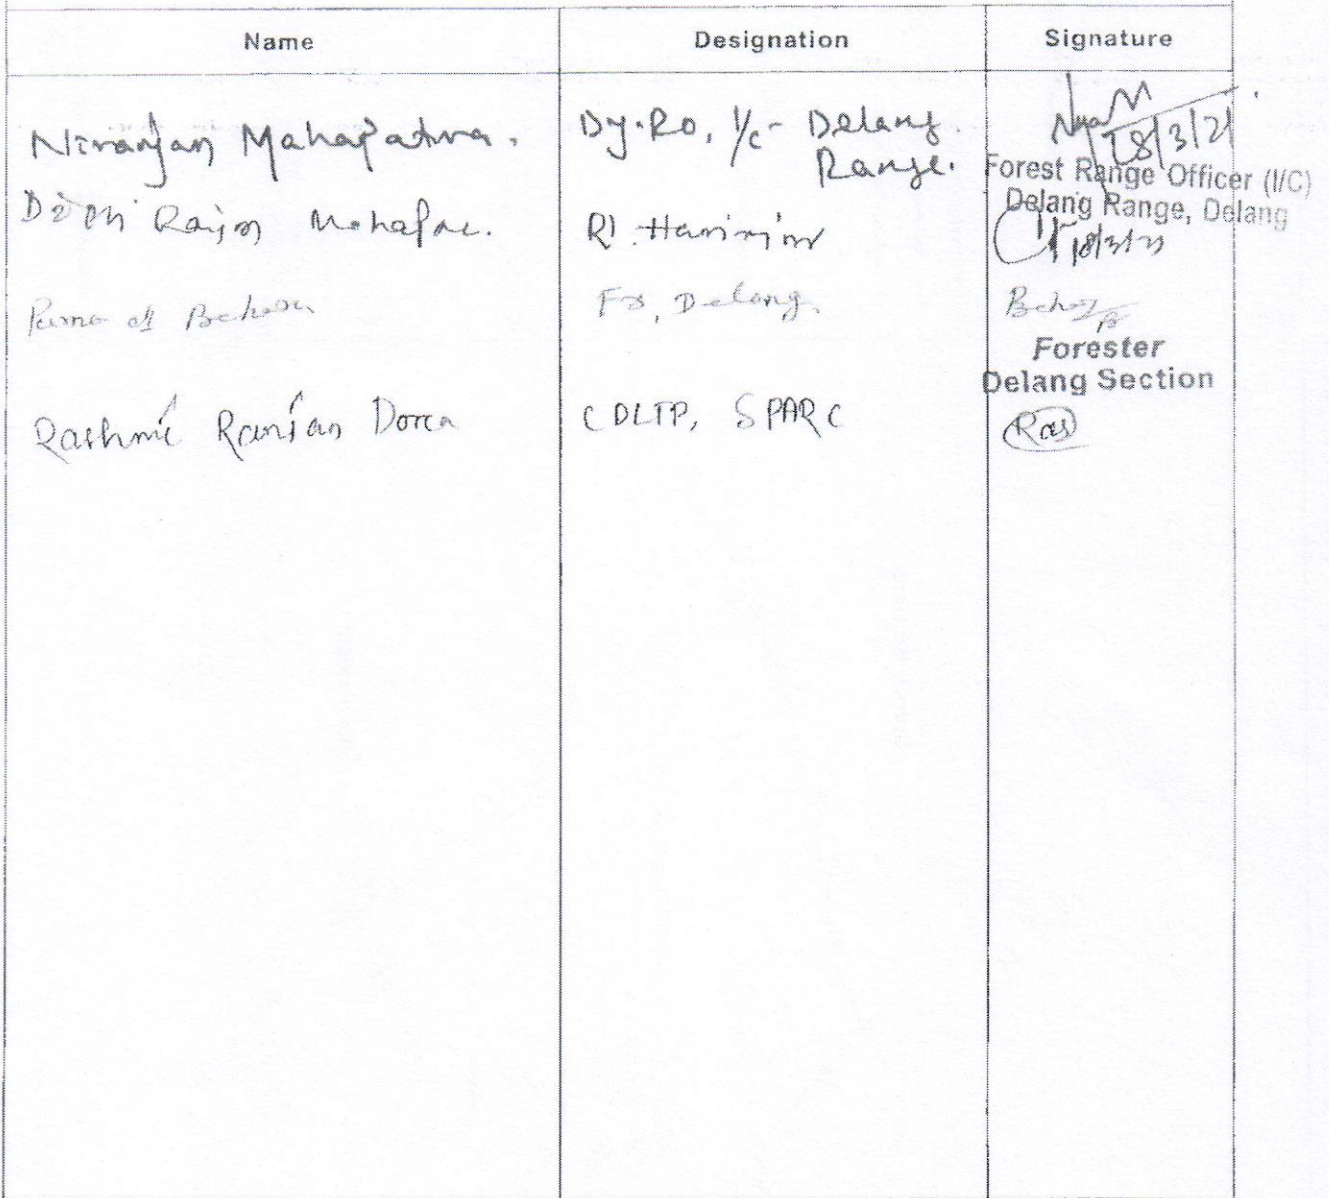 Name Designation Signature
Niranjan Mahapatra. Dy.Ro, I/c- Delang Range. 18/3/21
Forest Range Officer (I/C)
Delang Range, Delang
Ranjan Mohapa RI. 18/3/21
Behera Fr, Delang.
Forester
Delang Section
Rashmi Ranjan Dora CDLTP, SPARC Ras